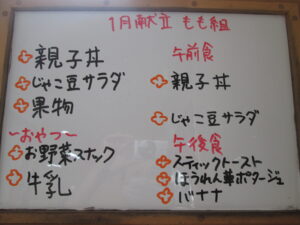 1月献立 もも組
親子丼
じゃこ豆サラダ
果物
～おやつ～
お野菜スナック
牛乳
午前食
親子丼
じゃこ豆サラダ
午後食
スティックトースト
ほうれん草ポタージュ
バナナ